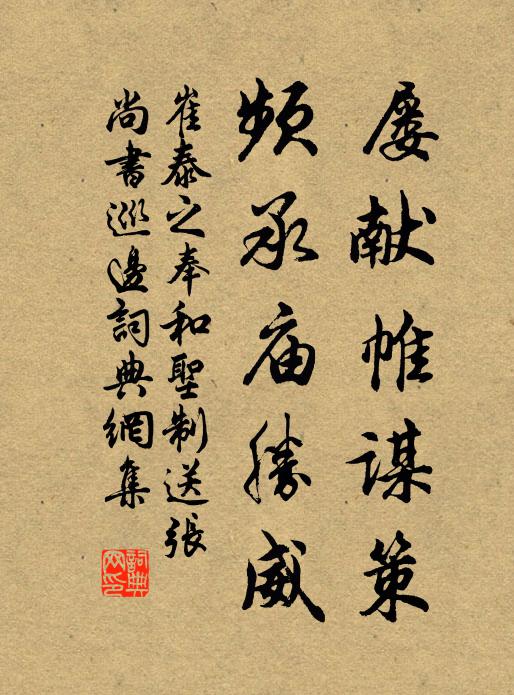 屡献帷谋策
频承庙胜威
崔泰之奉和聖制送張
尚書巡邊詞典網集
詞典
网印